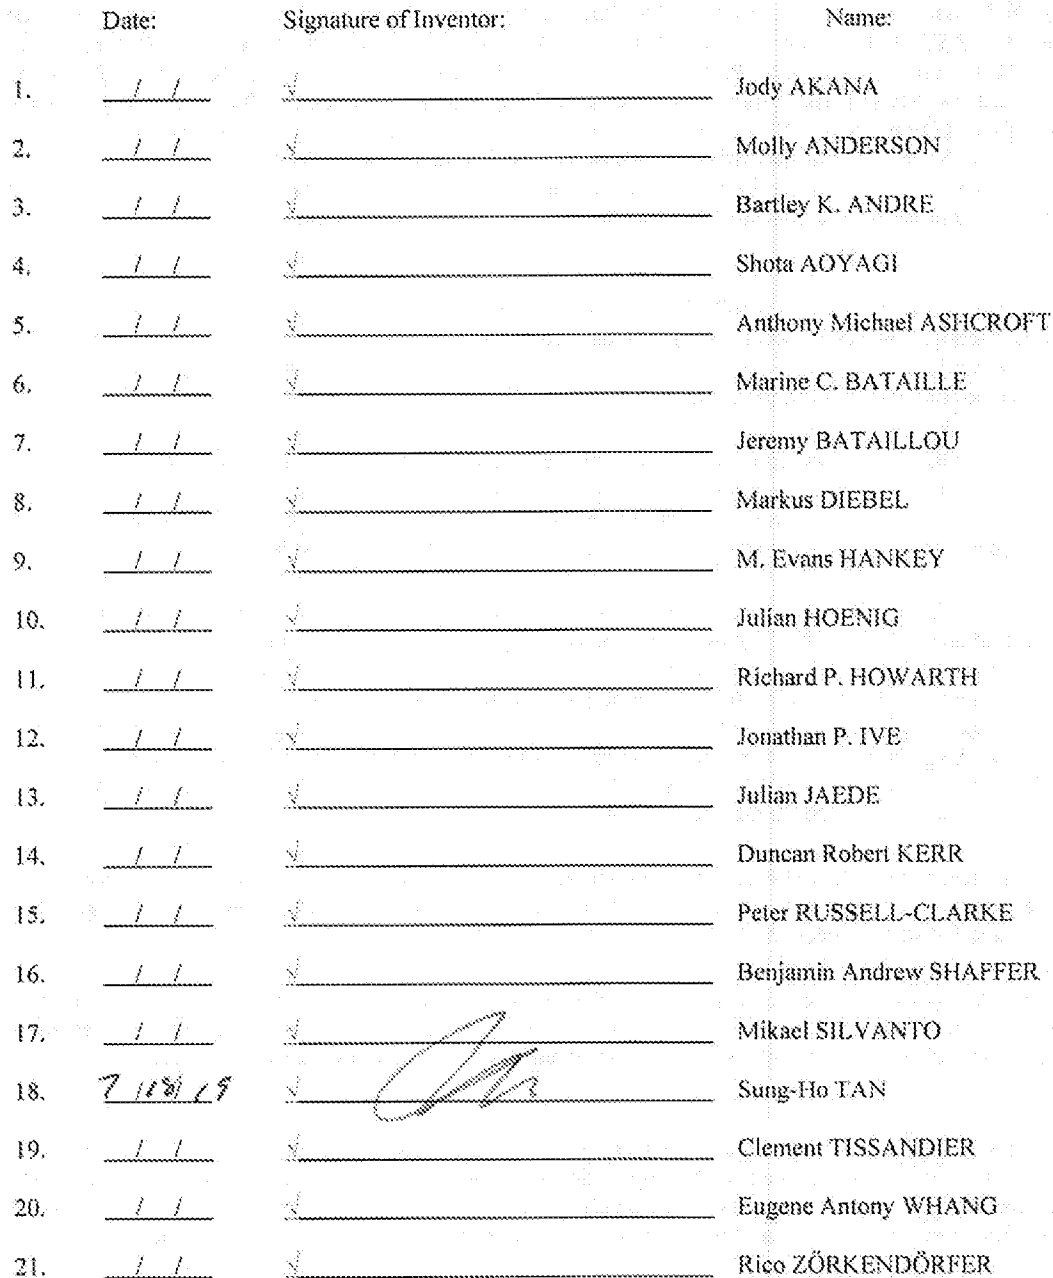 Date: Signature of Inventor: Name:
1. / / √ Jody AKANA
2. / / √ Molly ANDERSON
3. / / √ Bartley K. ANDRE
4. / / √ Shota AOYAGI
5. / / √ Anthony Michael ASHCROFT
6. / / √ Marine C. BATAILLE
7. / / √ Jeremy BATAILLOU
8. / / √ Markus DIEBEL
9. / / √ M. Evans HANKEY
10. / / √ Julian HOENIG
11. / / √ Richard P. HOWARTH
12. / / √ Jonathan P. IVE
13. / / √ Julian JAEDE
14. / / √ Duncan Robert KERR
15. / / √ Peter RUSSELL-CLARKE
16. / / √ Benjamin Andrew SHAFFER
17. / / √ Mikael SILVANTO
18. 7 /18/ 19 √ Sung-Ho TAN
19. / / √ Clement TISSANDIER
20. / / √ Eugene Antony WHANG
21. / / √ Rico ZÖRKENDÖRFER